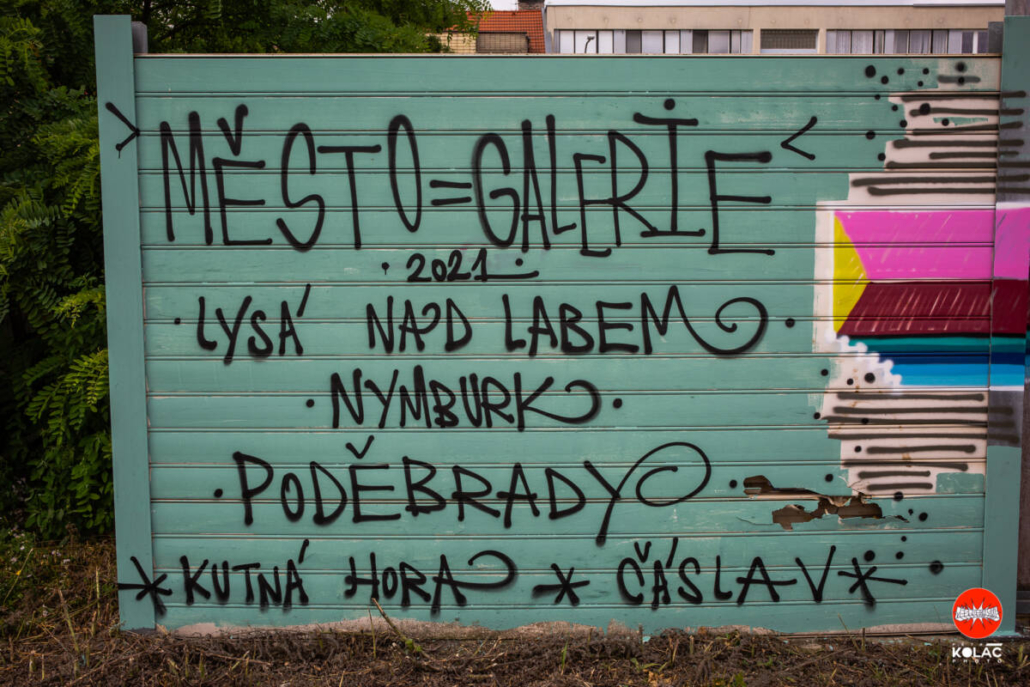 > MĚSTO=GALERIE <
· 2021
· LYSÁ NAD LABEM ·
· NYMBURK ·
· PODĚBRADY ·
* KUTNÁ HORA * ČÁSLAV *
KOLÁČ
PHOTO